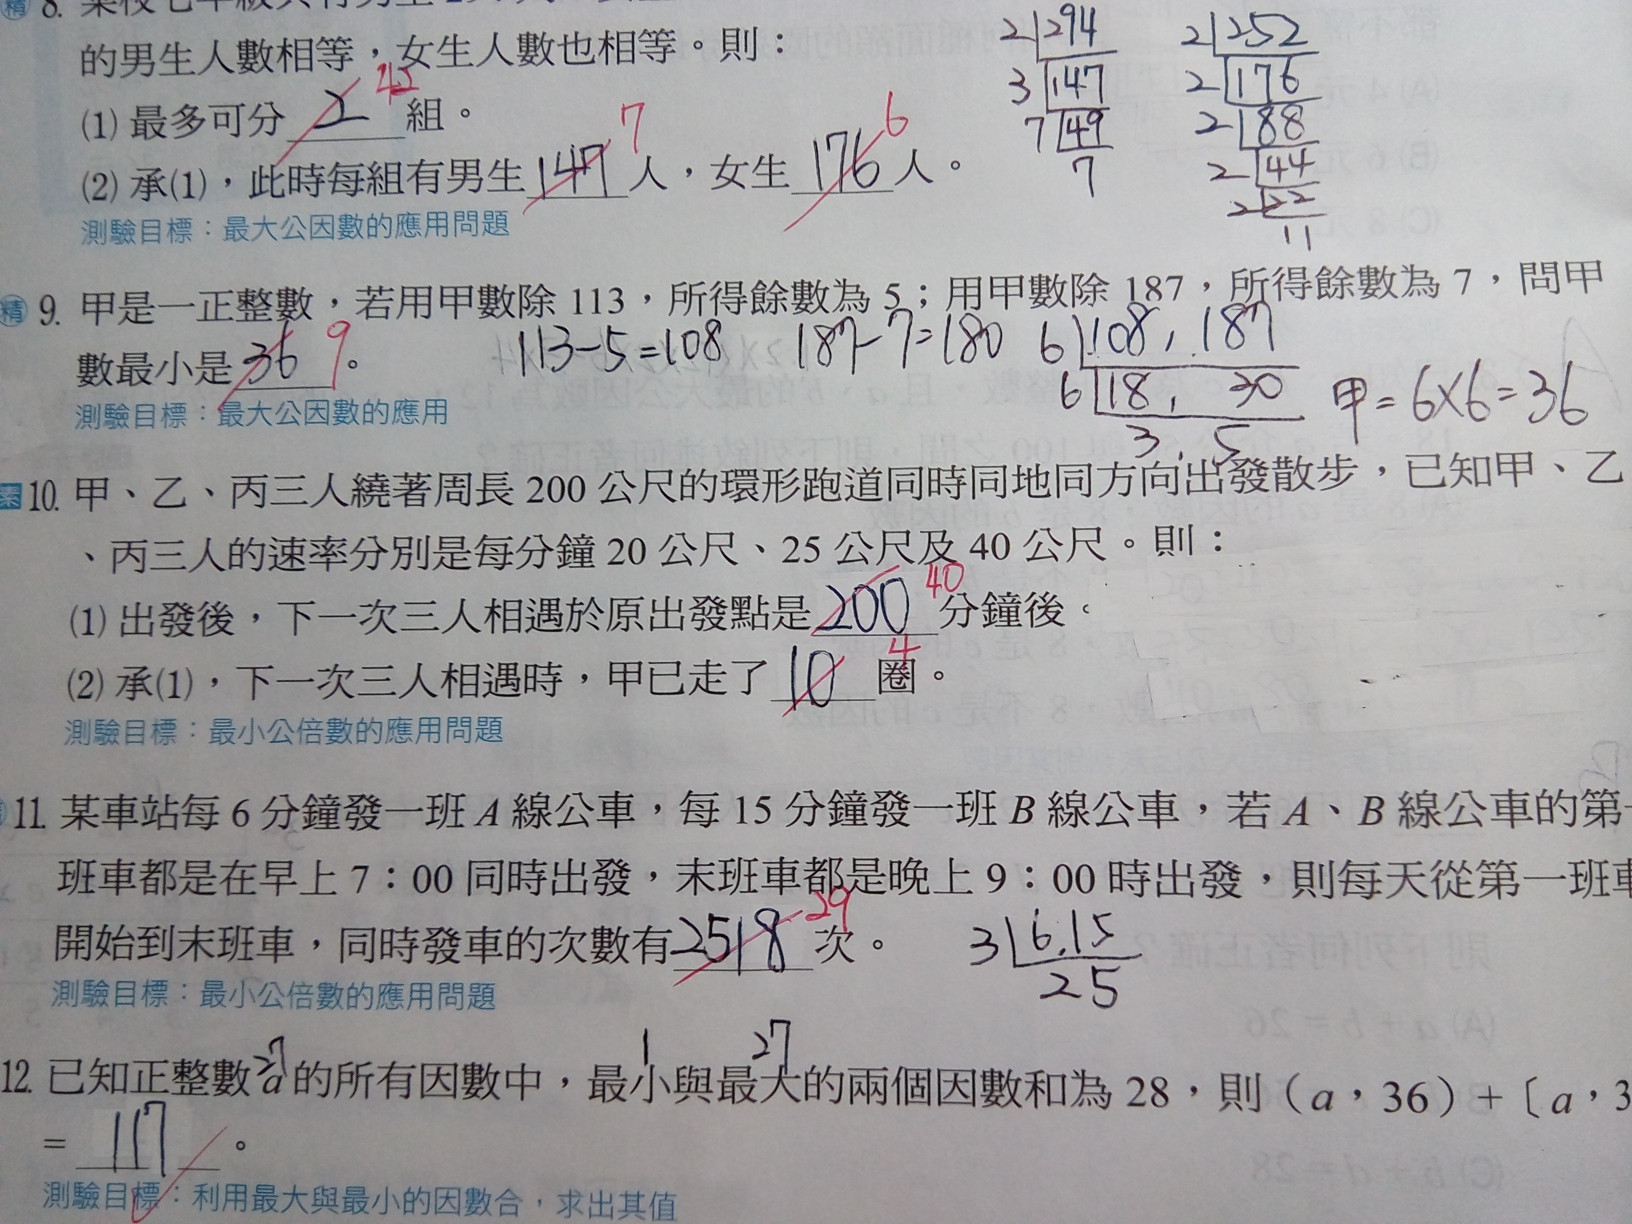 的男生人數相等，女生人數也相等。則：
(1) 最多可分 2 組。 42
(2) 承(1)，此時每組有男生 147 人，女生 176 人。 7 6
測驗目標：最大公因數的應用問題
2 294
3 147
7 49
7
2 252
2 176
2 88
2 44
2 22
11
9. 甲是一正整數，若用甲數除 113，所得餘數為 5；用甲數除 187，所得餘數為 7，問甲
數最小是 36 。 9
113-5=108 187-7=180
6 108, 187
6 18, 30
3, 5
甲=6×6=36
測驗目標：最大公因數的應用
素 10. 甲、乙、丙三人繞著周長 200 公尺的環形跑道同時同地同方向出發散步，已知甲、乙
、丙三人的速率分別是每分鐘 20 公尺、25 公尺及 40 公尺。則：
(1) 出發後，下一次三人相遇於原出發點是 200 分鐘後。 40
(2) 承(1)，下一次三人相遇時，甲已走了 10 圈。 4
測驗目標：最小公倍數的應用問題
11. 某車站每 6 分鐘發一班 A 線公車，每 15 分鐘發一班 B 線公車，若 A、B 線公車的第一
班車都是在早上 7：00 同時出發，末班車都是晚上 9：00 時出發，則每天從第一班車
開始到末班車，同時發車的次數有 2518 次。 29
3 6,15
2 5
測驗目標：最小公倍數的應用問題
27 1 27
12. 已知正整數 a 的所有因數中，最小與最大的兩個因數和為 28，則（a，36）+〔a，3
= 117 。
測驗目標：利用最大與最小的因數合，求出其值